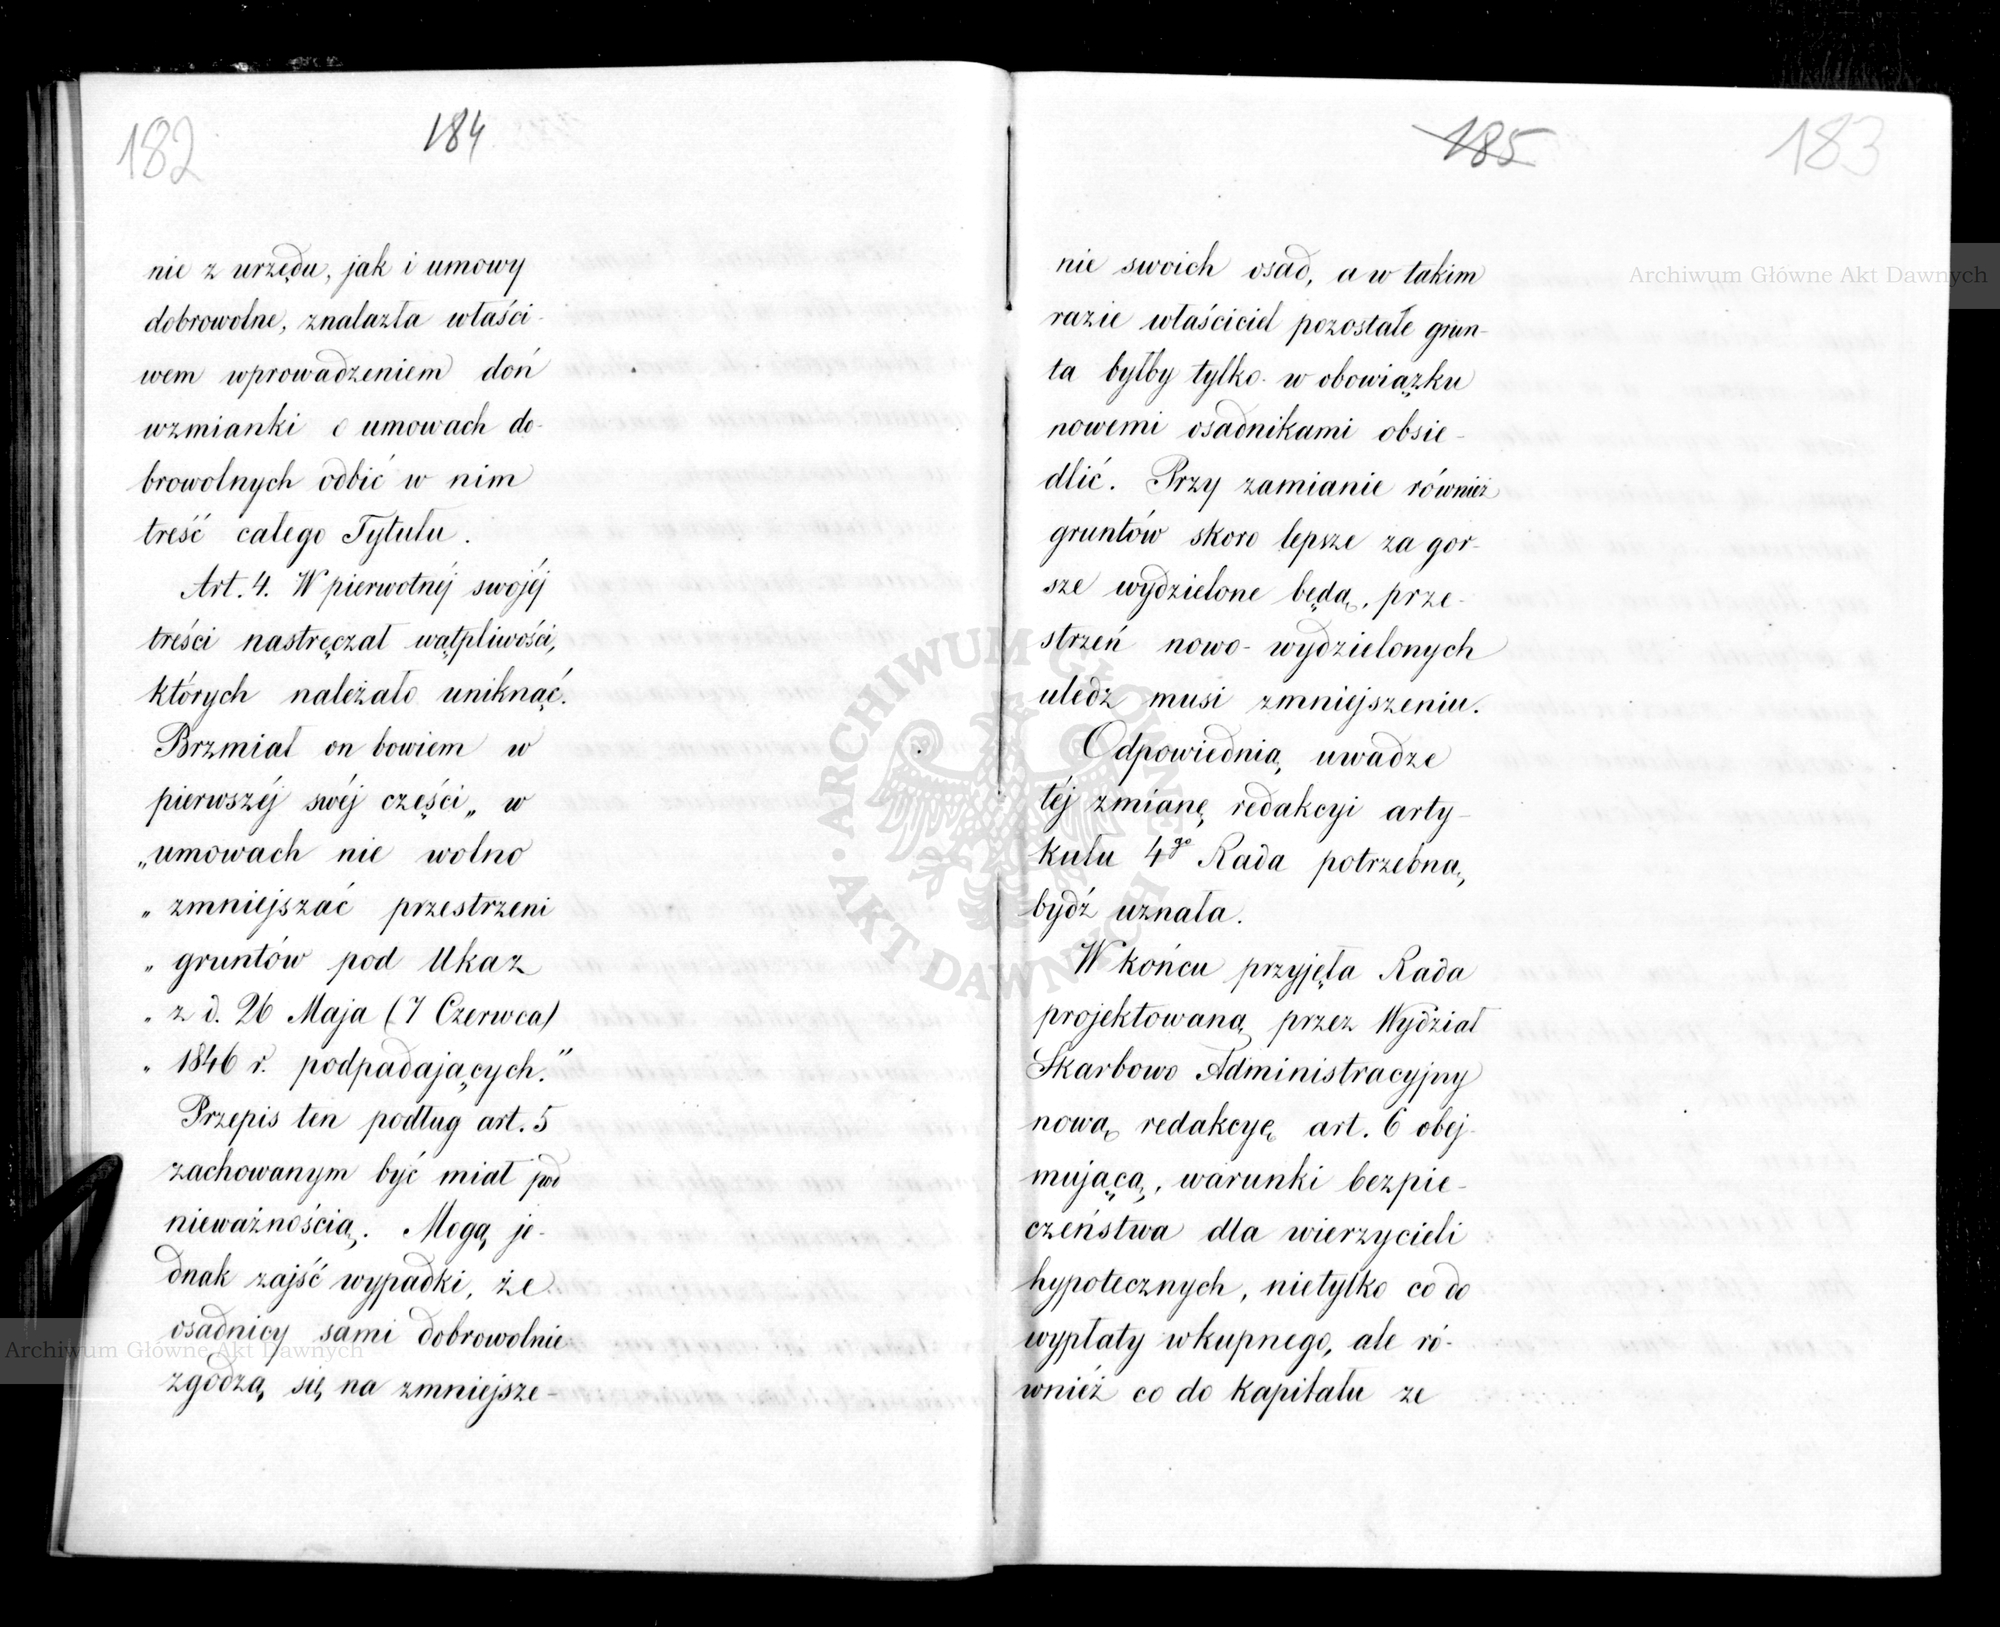 182
184
nie z urzędu, jak i umowy
dobrowolne, znalazła właści-
wem wprowadzeniem doń
wzmianki o umowach do-
browolnych odbić w nim
treść całego Tytułu.
Art. 4. W pierwotnéj swojéj
treści nastręczał wątpliwości,
których należało uniknąć.
Brzmiał on bowiem w
pierwszéj swéj części „ w
„ umowach nie wolno
„ zmniejszać przestrzeni
„ gruntów pod Ukaz
„ z d. 26 Maja (7 Czerwca)
„ 1846 r. podpadających."
Przepis ten podług art. 5
zachowanym być miał pod
nieważnością. Mogą je-
dnak zajść wypadki, że
osadnicy sami dobrowolnie
zgodzą się na zmniejsze-
185
183
nie swoich osad, a w takim
razie właściciel pozostałe grun-
ta byłby tylko w obowiązku
nowemi osadnikami obsie-
dlić. Przy zamianie również
gruntów skoro lepsze za gor-
sze wydzielone będą, prze-
strzeń nowo-wydzielonych
uledz musi zmniejszeniu.
Odpowiednią uwadze
téj zmianę redakcyi arty-
kułu 4go Rada potrzebną
bydź uznała.
W końcu przyjęła Rada
projektowaną przez Wydział
Skarbowo Administracyjny
nową redakcyę art. 6 obej-
mującą, warunki bezpie-
czeństwa dla wierzycieli
hypotecznych, nietylko co do
wypłaty wkupnego, ale ró-
wnież co do kapitału ze
Archiwum Główne Akt Dawnych
Archiwum Główne Akt Dawnych
ARCHIWUM GŁÓWNE AKT DAWNYCH